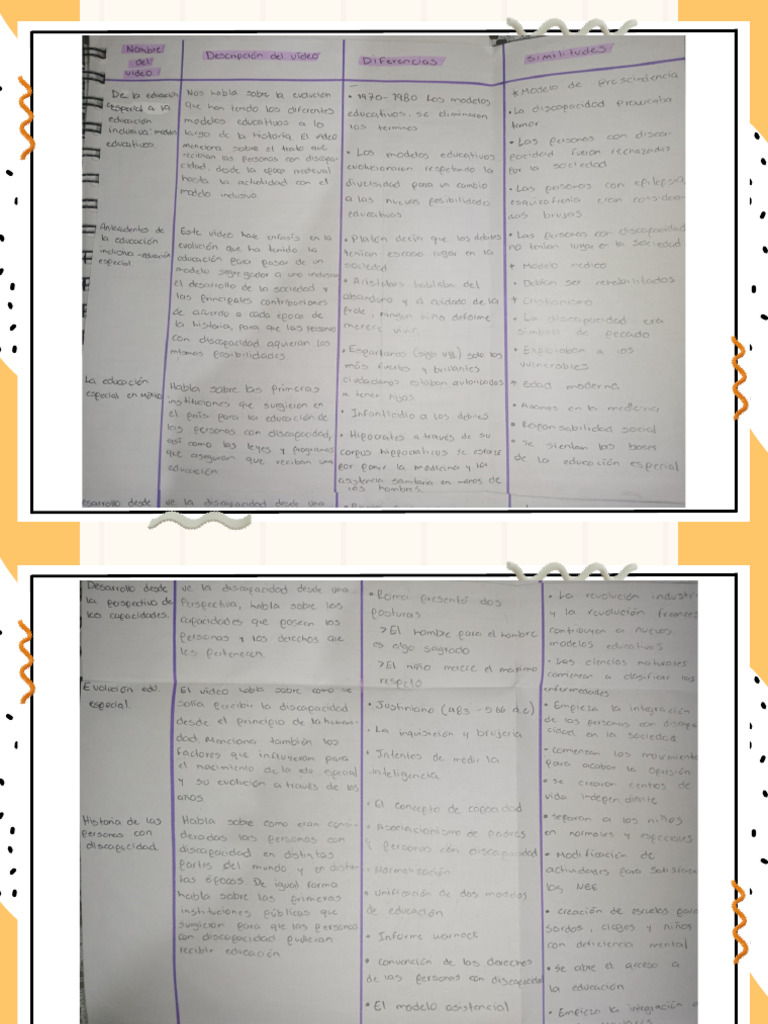 Nombre
del
video
Descripción del video
Diferencias
Similitudes
De la educación
especial a la
educación
inclusiva: modelos
educativos
Nos habla sobre la evolución
que han tenido los diferentes
modelos educativos a lo
largo de la historia. El video
menciona sobre el trato que
recibian las personas con discapa-
cidad, desde la epoca medieval
hasta la actualidad con el
modelo inclusivo.
• 1970-1980 Los modelos
educativos, se eliminaron
los terminos
• Los modelos educativos
evolucionaron respetando la
diversidad para un cambio
a las nuevas posibilidades
educativas
* Modelo de prescindencia
• La discapacidad provocaba
temor
• Las personas con discap
pacidad fueron rechazadas
por la sociedad
• Las personas con epilepsia,
esquizofrenia eran considera
das brujas
• Las personas con discapacidad
no tenian lugar en la sociedad
* Modelo medico
• Debian ser rehabilitados
* Cristianismo
• La discapacidad era
simbolo de pecado
• Explotaban a los
vulnerables
* Edad moderna
• Avances en la medicina
• Responsabilidad social
• Se sientan las bases
de la educación especial
Antecedentes de
la educación
inclusiva -educación
especial
Este video hace enfasis en la
evolución que ha tenido la
educación para pasar de un
modelo segregador a uno inclusivo
el desarrollo de la sociedad y
las principales contribuciones
de acuerdo a cada epoca de
la historia, para que las personas
con discapacidad adquieran las
mismas posibilidades.
• Platón decia que los debiles
tenian escaso lugar en la
sociedad
• Aristoteles hablaba del
abandono y el cuidado de la
prole, ningun niño deforme
merece vivir.
• Espartanos (siglo VIII) solo los
más fuertes y brillantes
ciudadanos estaban autorizados
a tener hijos
• Infanticidio a los debiles
• Hipocrates a través de su
corpus hippocraticus se esforzo
por poner la medicina y las
asistencia sanitaria en manos de
los hombres.
La educación
especial en México
Habla sobre las primeras
instituciones que surgieron en
el país para la educación de
las personas con discapacidad,
así como las leyes y programas
que aseguran que reciban una
educación
esarrollo desde
ve la discapacidad desde una
Desarrollo desde
la perspectiva de
las capacidades.
ve la discapacidad desde una
Perspectiva, habla sobre las
capacidades que poseen las
personas y los derechos que
les pertenecen.
• Roma presentó dos
posturas
>El hombre para el hombre
es algo sagrado
>El niño merece el maximo
respeto
• La revolución industri
y la revolución frances
contribuyen a nuevos
modelos educativos
• Las ciencias naturales
comienzan a clasificar las
enfermedades
• Empieza la integración
de las personas con discapa
cidad en la sociedad
• comienzan los movimiento
para acabar la opresión
• se crearon centros de
vida independiente
• separan a los niños
en normales y especiales
• Modificación de
actividades para satisfacer
las NEE
• creación de escuelas para
sordos, ciegos y niños
con deficiencia mental
• se abre el acceso a
la educación
• Empieza la integración
Evolución edu.
especial.
El video habla sobre como se
solía percibir la discapacidad
desde el principio de la human
dad. Menciona también los
factores que influyeron para
el nacimiento de la edu especial
y su evolución a través de los
años
• Justiniano (483 -566 d.c)
• La inquisición y brujeria
• Intentos de medir la
inteligencia
• El concepto de capacidad
• Asociacionismo de padres
y personas con discapacidad
• Normalización
• Unificación de dos modelos
de educación
• Informe warnock
• convención de los derechos
de las personas con discapacidad
• El modelo asistencial
Historia de las
personas con
discapacidad.
Habla sobre como eran consi
deradas las personas con
discapacidad en distintas
partes del mundo y en distin
tas épocas. De igual forma
habla sobre las primeras
instituciones públicas que
surgieron para que las personas
con discapacidad pudieran
recibir educación